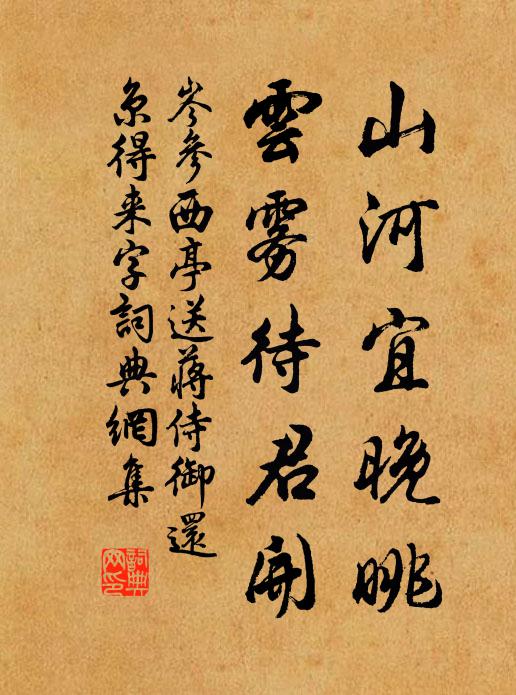 山河宜晚眺
雲霧待君開
岑參西亭送蔣侍御還
京得来字詞典網集
詞典
网印